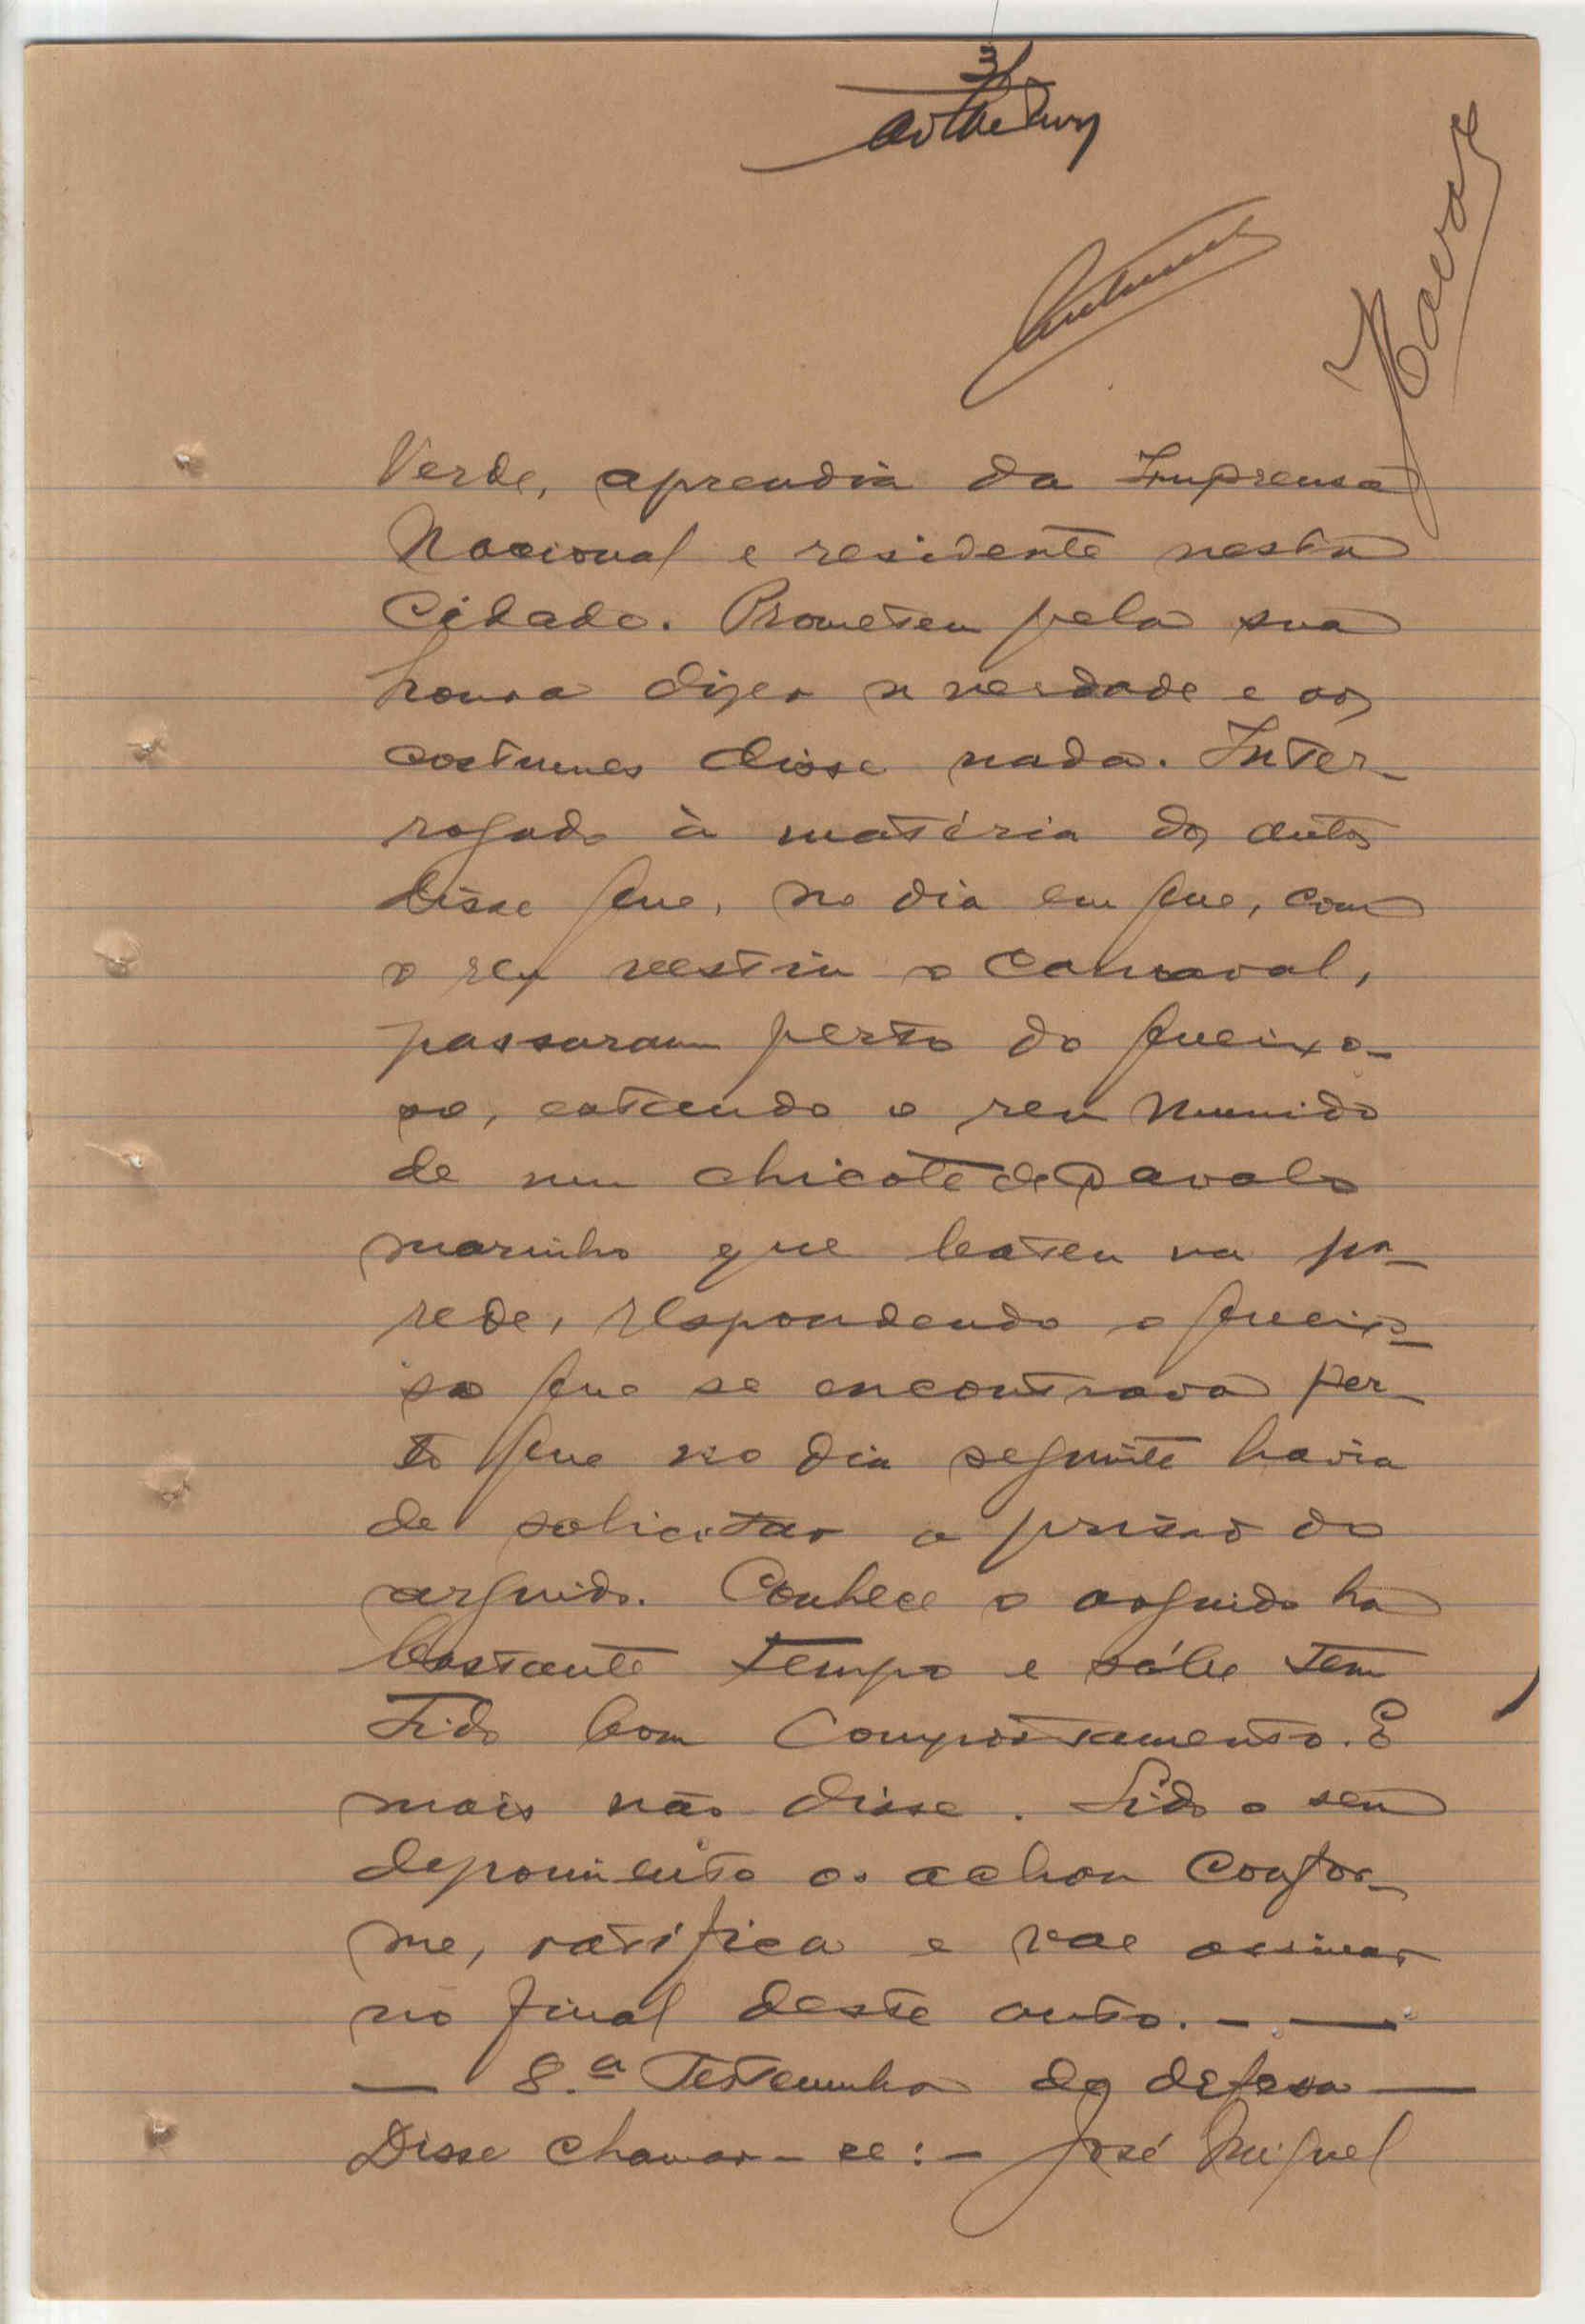 31
Verde, aprendiz da Imprensa
Nacional e residente nesta
Cidade. Prometeu pela sua
honra dizer a verdade e aos
costumes disse nada. Inter-
rogado à matéria dos autos
disse que, no dia em que, com
o reu vestiu o Carnaval,
passaram perto do queixo-
so, estando o reu munido
de um chicote de cavalo
marinho que bateu na pa-
rede, respondendo o queixo-
so que se encontrava per-
to que no dia seguinte havia
de solicitar a prisão do
arguido. Conhece o arguido ha
bastante tempo e sábe tem
tido bom comportamento. E
mais não disse. Lido o seu
depoimento o achou confor-
me, ratifica e vae assinar
no final deste auto. - —
— 8.ª Testemunha de defesa —
Disse chamar-se: - José Miguel